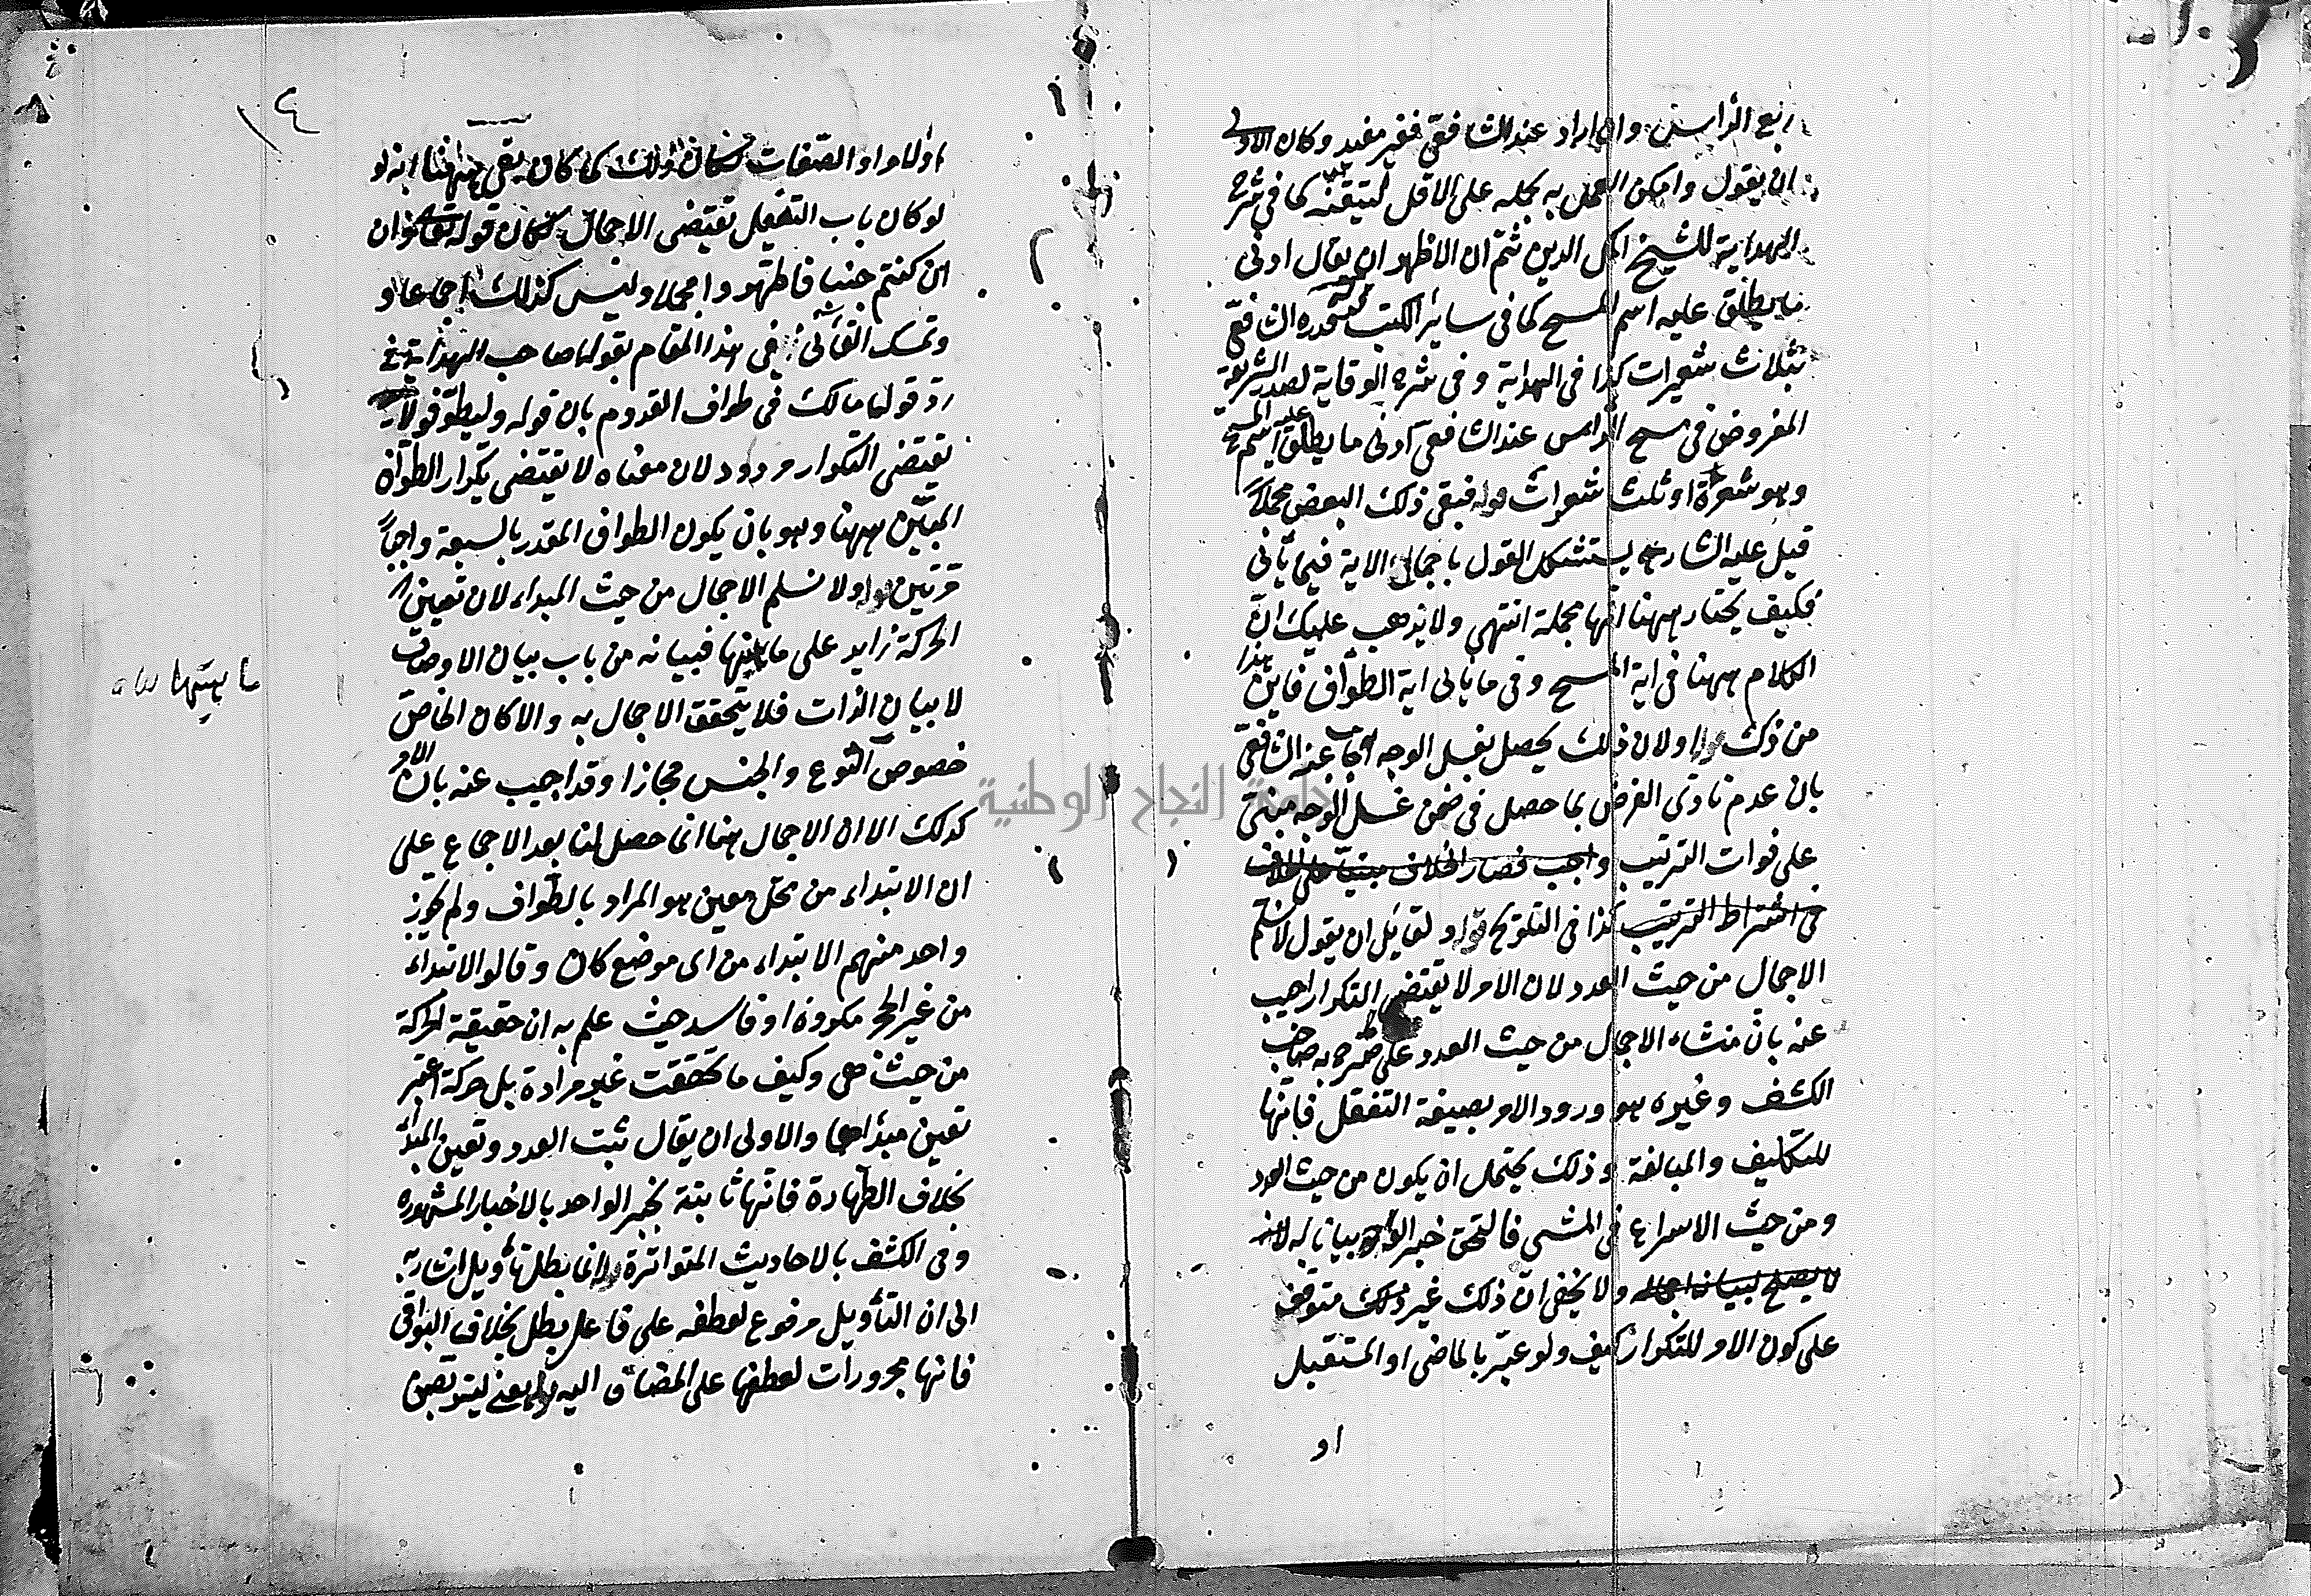 ربع الرأس وان اراد عند الشافعي فغير مفيد وكان الاولى
ان يقول وامكن العمل به بحمله على الاقل لتيقنه كما في شرح
الهداية للشيخ اكمل الدين ثم ان الاظهر ان يقال ادنى
ما يطلق عليه اسم المسح كما في سائر الكتب الشافعي
بثلاث شعيرات كذا في الهداية وفي شرح الوقاية لصدر الشريعة
المفروض في مسح الرأس عند الشافعي ادنى ما يطلق عليه اسم المسح
وهو شعرة او ثلث شعرات قوله فبقي ذلك البعض مجملاً
قيل عليه الشارح يستشكل القول باجمال الاية فيما يأتي
فكيف يختار ههنا انها مجملة انتهى ولا يذهب عليك ان
الكلام ههنا في اية المسح وفي ما يأتي اية الطواف فاين هذا
من ذلك قوله ولان ذلك يحصل بغسل الوجه اجاب عنه الشافعي
بان عدم تأدى الفرض بما حصل في ضمن غسل الوجه مبنى
على فوات الترتيب واجب فصار الخلاف مبنيا على الخلاف
في اشتراط الترتيب كذا في التلويح قوله ولقائل ان يقول لا نسلم
الاجمال من حيث العدد لان الامر لا يقتضي التكرار اجيب
عنه بان منشاء الاجمال من حيث العدد على ما صرح به صاحب
الكشف وغيره هو ورود الامر بصيغة التفعل فانها
للتكليف والمبالغة وذلك يحتمل ان يكون من حيث العدد
ومن حيث الاسراع في المشي فالتحق خبر الواحد بيانا له لانه
لا يصلح لبيان اجماله ولا يخفى ان ذلك غير ذلك متوقف
على كون الامر للتكرار كيف ولو عبر بالماضي او المستقبل
او
١٤
اولا واو الصفات لكان ذلك كما كان بقي ههنا انه لو
لو كان باب التفعل تقتضى الاجمال لكان قوله تعالى وان
ان كنتم جنبا فاطهروا مجملا وليس كذلك اجماعا و
وتمسك القائى في هذا المقام بقول صاحب الهداية في
رد قول مالك في طواف القدوم بان قوله وليطوفوا لا
يقتضى التكرار مردود لان معناه لا يقتضى تكرار الطواف
المبين ههنا وهو بان يكون الطواف المقدر بالسبعة واجباً
مرتين قوله ولا نسلم الاجمال من حيث المبداء لان تعين
الحركة زايد على ماهيتها فبيانه من باب بيان الاوصاف
ماهيتها
لا بيان الذات فلا يتحقق الاجمال به والا كان الخاص
خصوص النوع والجنس مجازا وقد اجيب عنه بان الامر
كذلك الا ان الاجمال هنا انما حصل لنا بعد الاجماع على
ان الابتداء من محل معين هو المراد بالطواف ولم يجوز
واحد منهم الابتداء من اى موضع كان وقالوا الابتداء
من غير الحجر مكروه او فاسد حيث علم به ان حقيقة الحركة
من حيث هى وكيف ما تحققت غير مرادة بل حركة اعتبر
تعين مبدأها والاولى ان يقال ثبت العدد وتعين المبدأ
بخلاف الطهارة فانها ثابتة بخبر الواحد بالاخبار المشهوره
وفى الكشف بالاحاديث المتواترة قوله انما بطل تأويل اشارة
الى ان التأويل مرفوع لعطفه على فاعل بطل بخلاف البواقي
فانها مجرورات لعطفها على المضاف اليه قوله بمعنى ليتربصن